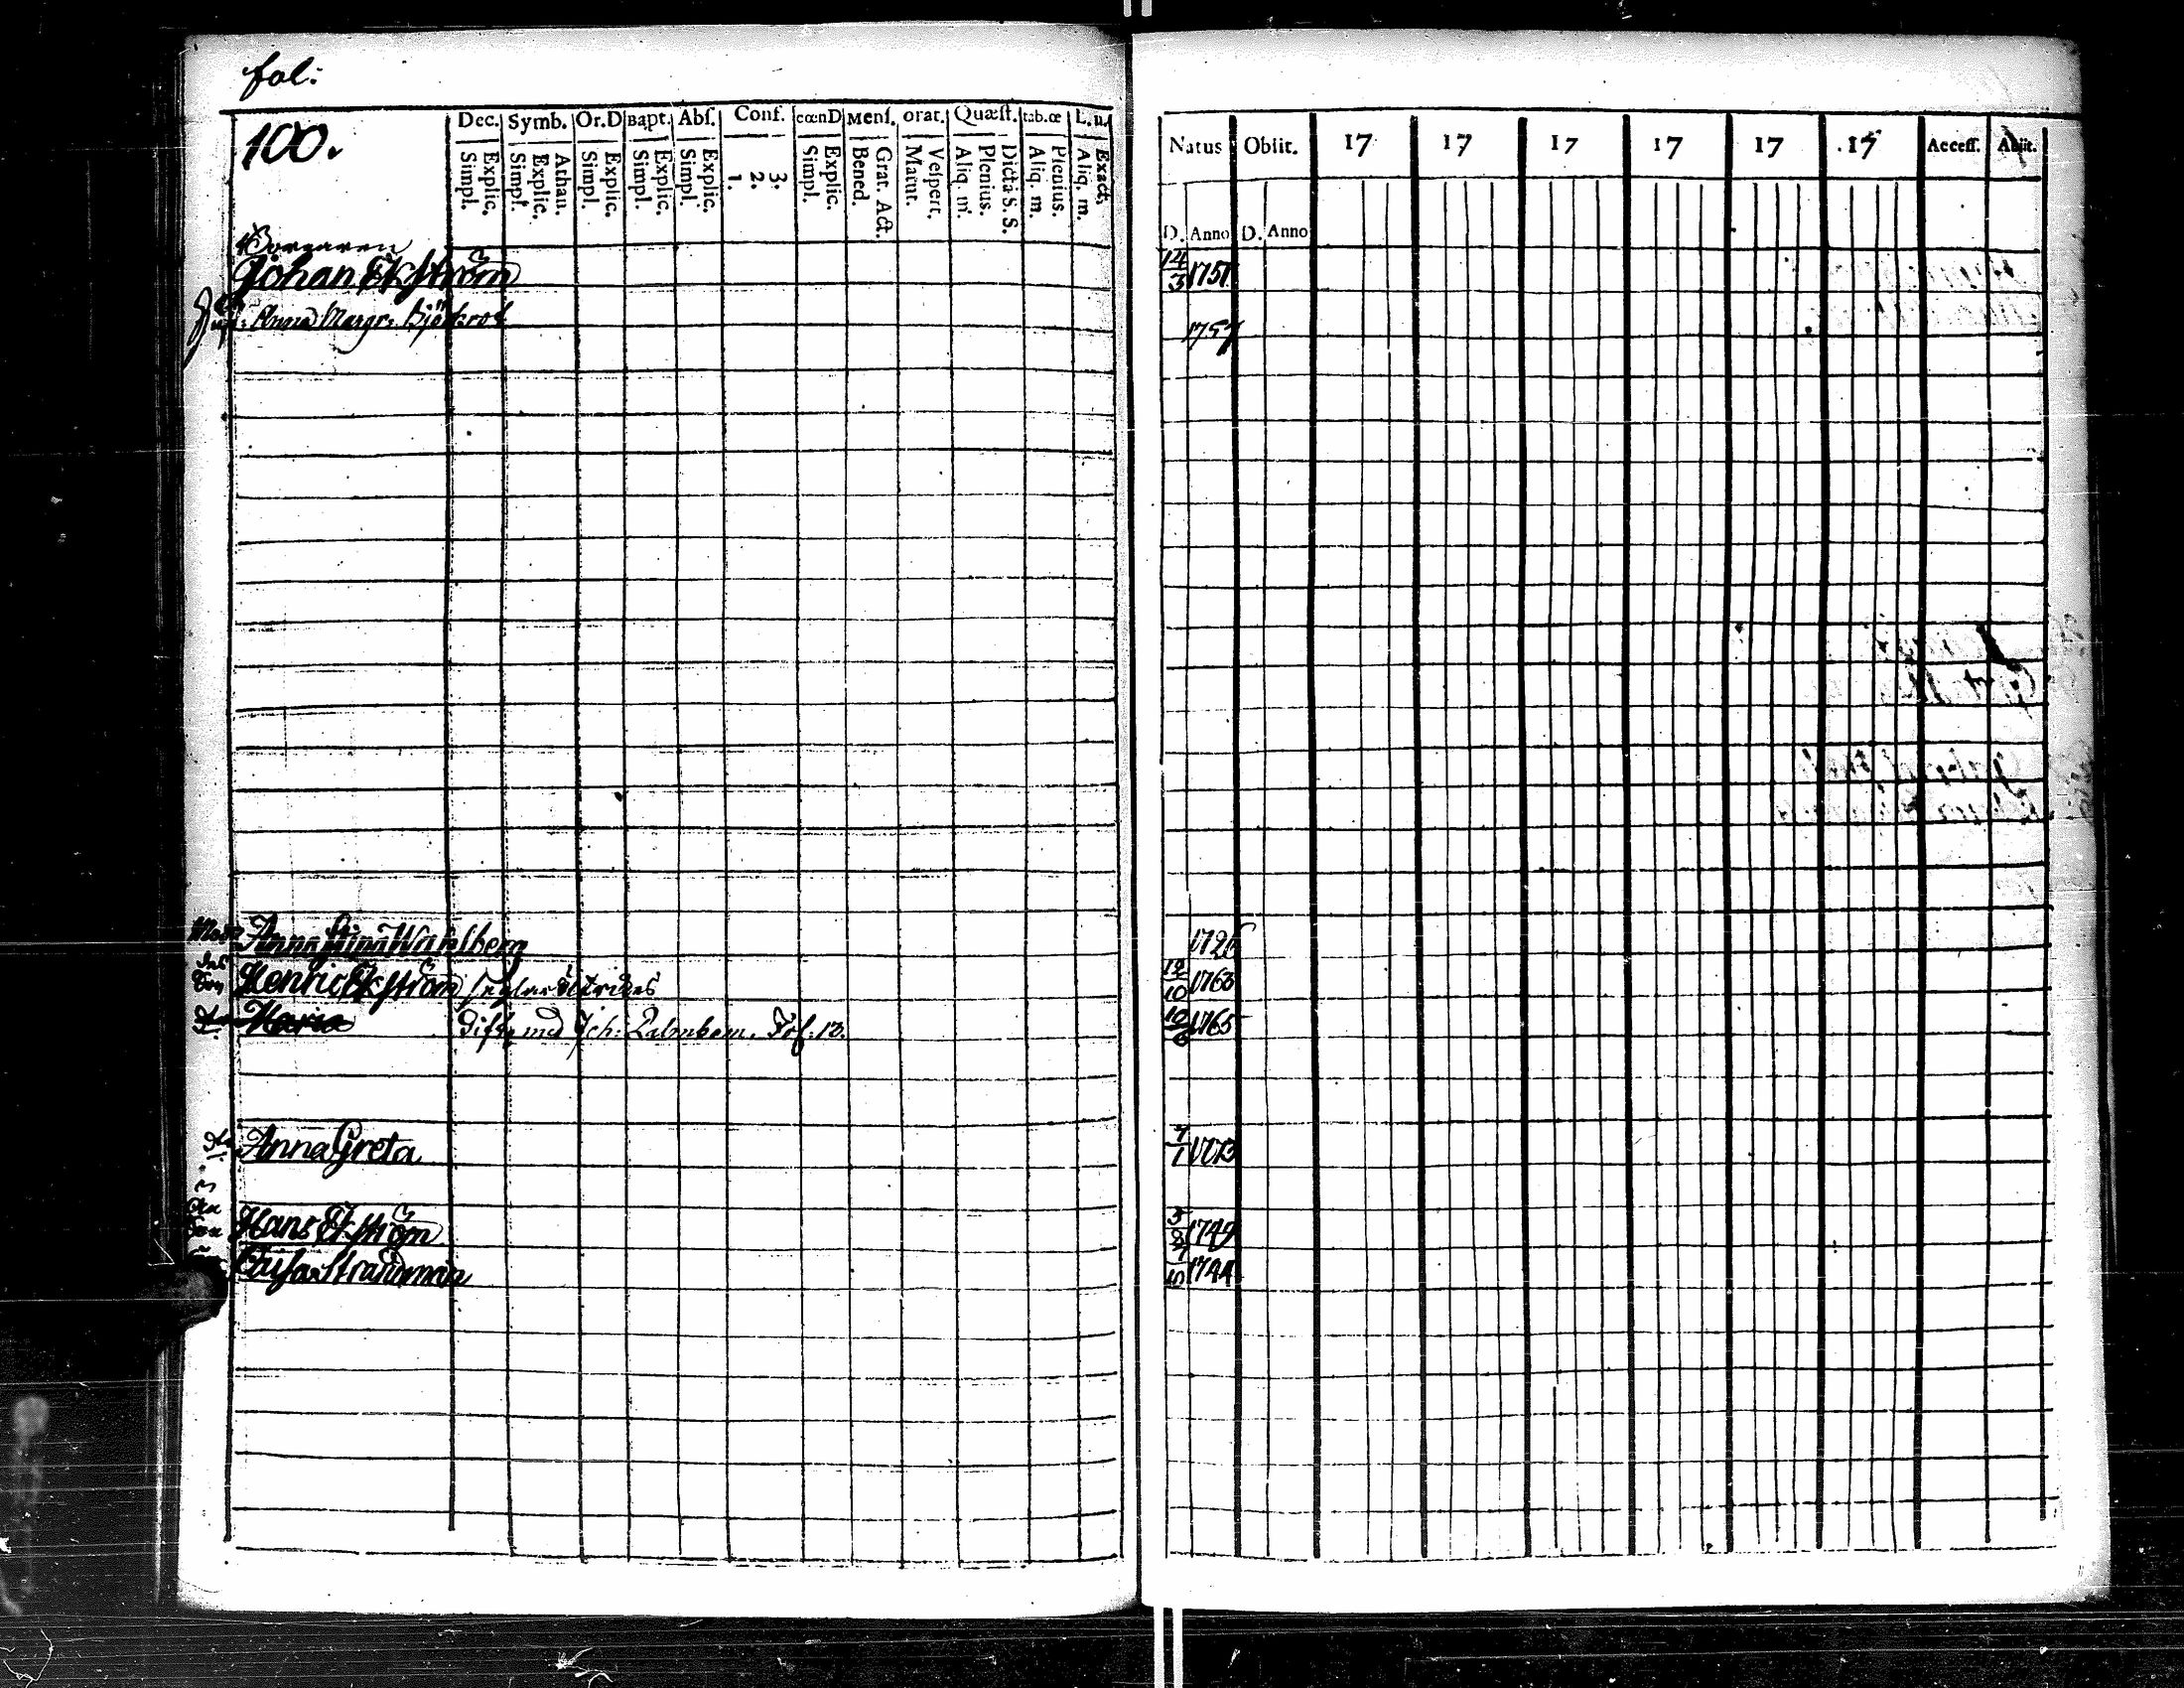 fol:
100.
Dec. Symb. Or.D Bapt. Abſ. Conf. cœnD Menſ. orat. Quæſt. tab.œ L. n.
Simpl. Explic. Simpl. Explic. Athan. Simpl. Explic. Simpl. Explic. Simpl. Explic. 1. 2. 3. Simpl. Explic. Bened. Grat. Act. Matut. Veſpert. Aliq. m. Plenius. Dicta S. S. Aliq. m. Plenius. Aliq. m. Exact.
Natus Obiit. 17 17 17 17 17 17 Acceſſ. Abiit.
D. Anno D. Anno
Borgaren
Johan Ekström 14/3 1751
Hust: Anna Margr: Björkrot 1757
Mod. Anna Stina Wahlberg 1726
Son Henric Ekström 12/10 1763
Maria Gift med Joh: Palmbom. Fol: 12. 10/6 1765
Anna Greta 7/1 1773
Son Hans Ekström 5/8 1749
Caisa Strandman 7/10 1744